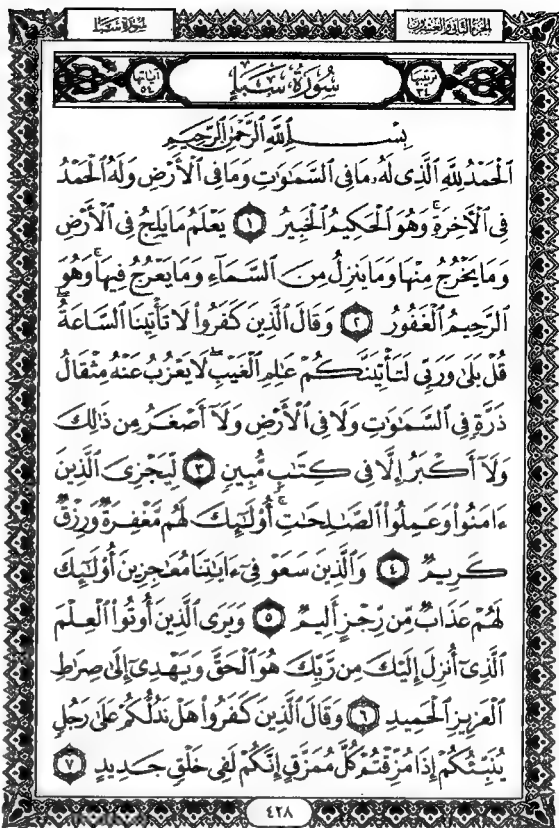 الجزء الثاني والعشرون
سورة سبأ
ترتيبها ٣٤
سُورَةُ سَبَإٍ
آياتها ٥٤
بِسْمِ ٱللَّهِ ٱلرَّحْمَٰنِ ٱلرَّحِيمِ
ٱلْحَمْدُ لِلَّهِ ٱلَّذِى لَهُۥ مَا فِى ٱلسَّمَٰوَٰتِ وَمَا فِى ٱلْأَرْضِ وَلَهُ ٱلْحَمْدُ
فِى ٱلْأَخِرَةِۚ وَهُوَ ٱلْحَكِيمُ ٱلْخَبِيرُ ١ يَعْلَمُ مَا يَلِجُ فِى ٱلْأَرْضِ
وَمَا يَخْرُجُ مِنْهَا وَمَا يَنزِلُ مِنَ ٱلسَّمَآءِ وَمَا يَعْرُجُ فِيهَاۚ وَهُوَ
ٱلرَّحِيمُ ٱلْغَفُورُ ٢ وَقَالَ ٱلَّذِينَ كَفَرُوا۟ لَا تَأْتِينَا ٱلسَّاعَةُۖ
قُلْ بَلَىٰ وَرَبِّى لَتَأْتِيَنَّكُمْ عَٰلِمِ ٱلْغَيْبِۖ لَا يَعْزُبُ عَنْهُ مِثْقَالُ
ذَرَّةٍ فِى ٱلسَّمَٰوَٰتِ وَلَا فِى ٱلْأَرْضِ وَلَآ أَصْغَرُ مِن ذَٰلِكَ
وَلَآ أَكْبَرُ إِلَّا فِى كِتَٰبٍ مُّبِينٍ ٣ لِّيَجْزِىَ ٱلَّذِينَ
ءَامَنُوا۟ وَعَمِلُوا۟ ٱلصَّٰلِحَٰتِۚ أُو۟لَٰٓئِكَ لَهُم مَّغْفِرَةٌ وَرِزْقٌ
كَرِيمٌ ٤ وَٱلَّذِينَ سَعَوْ فِىٓ ءَايَٰتِنَا مُعَٰجِزِينَ أُو۟لَٰٓئِكَ
لَهُمْ عَذَابٌ مِّن رِّجْزٍ أَلِيمٌ ٥ وَيَرَى ٱلَّذِينَ أُوتُوا۟ ٱلْعِلْمَ
ٱلَّذِىٓ أُنزِلَ إِلَيْكَ مِن رَّبِّكَ هُوَ ٱلْحَقَّ وَيَهْدِىٓ إِلَىٰ صِرَٰطِ
ٱلْعَزِيزِ ٱلْحَمِيدِ ٦ وَقَالَ ٱلَّذِينَ كَفَرُوا۟ هَلْ نَدُلُّكُمْ عَلَىٰ رَجُلٍ
يُنَبِّئُكُمْ إِذَا مُزِّقْتُمْ كُلَّ مُمَزَّقٍ إِنَّكُمْ لَفِى خَلْقٍ جَدِيدٍ ٧
٤٢٨